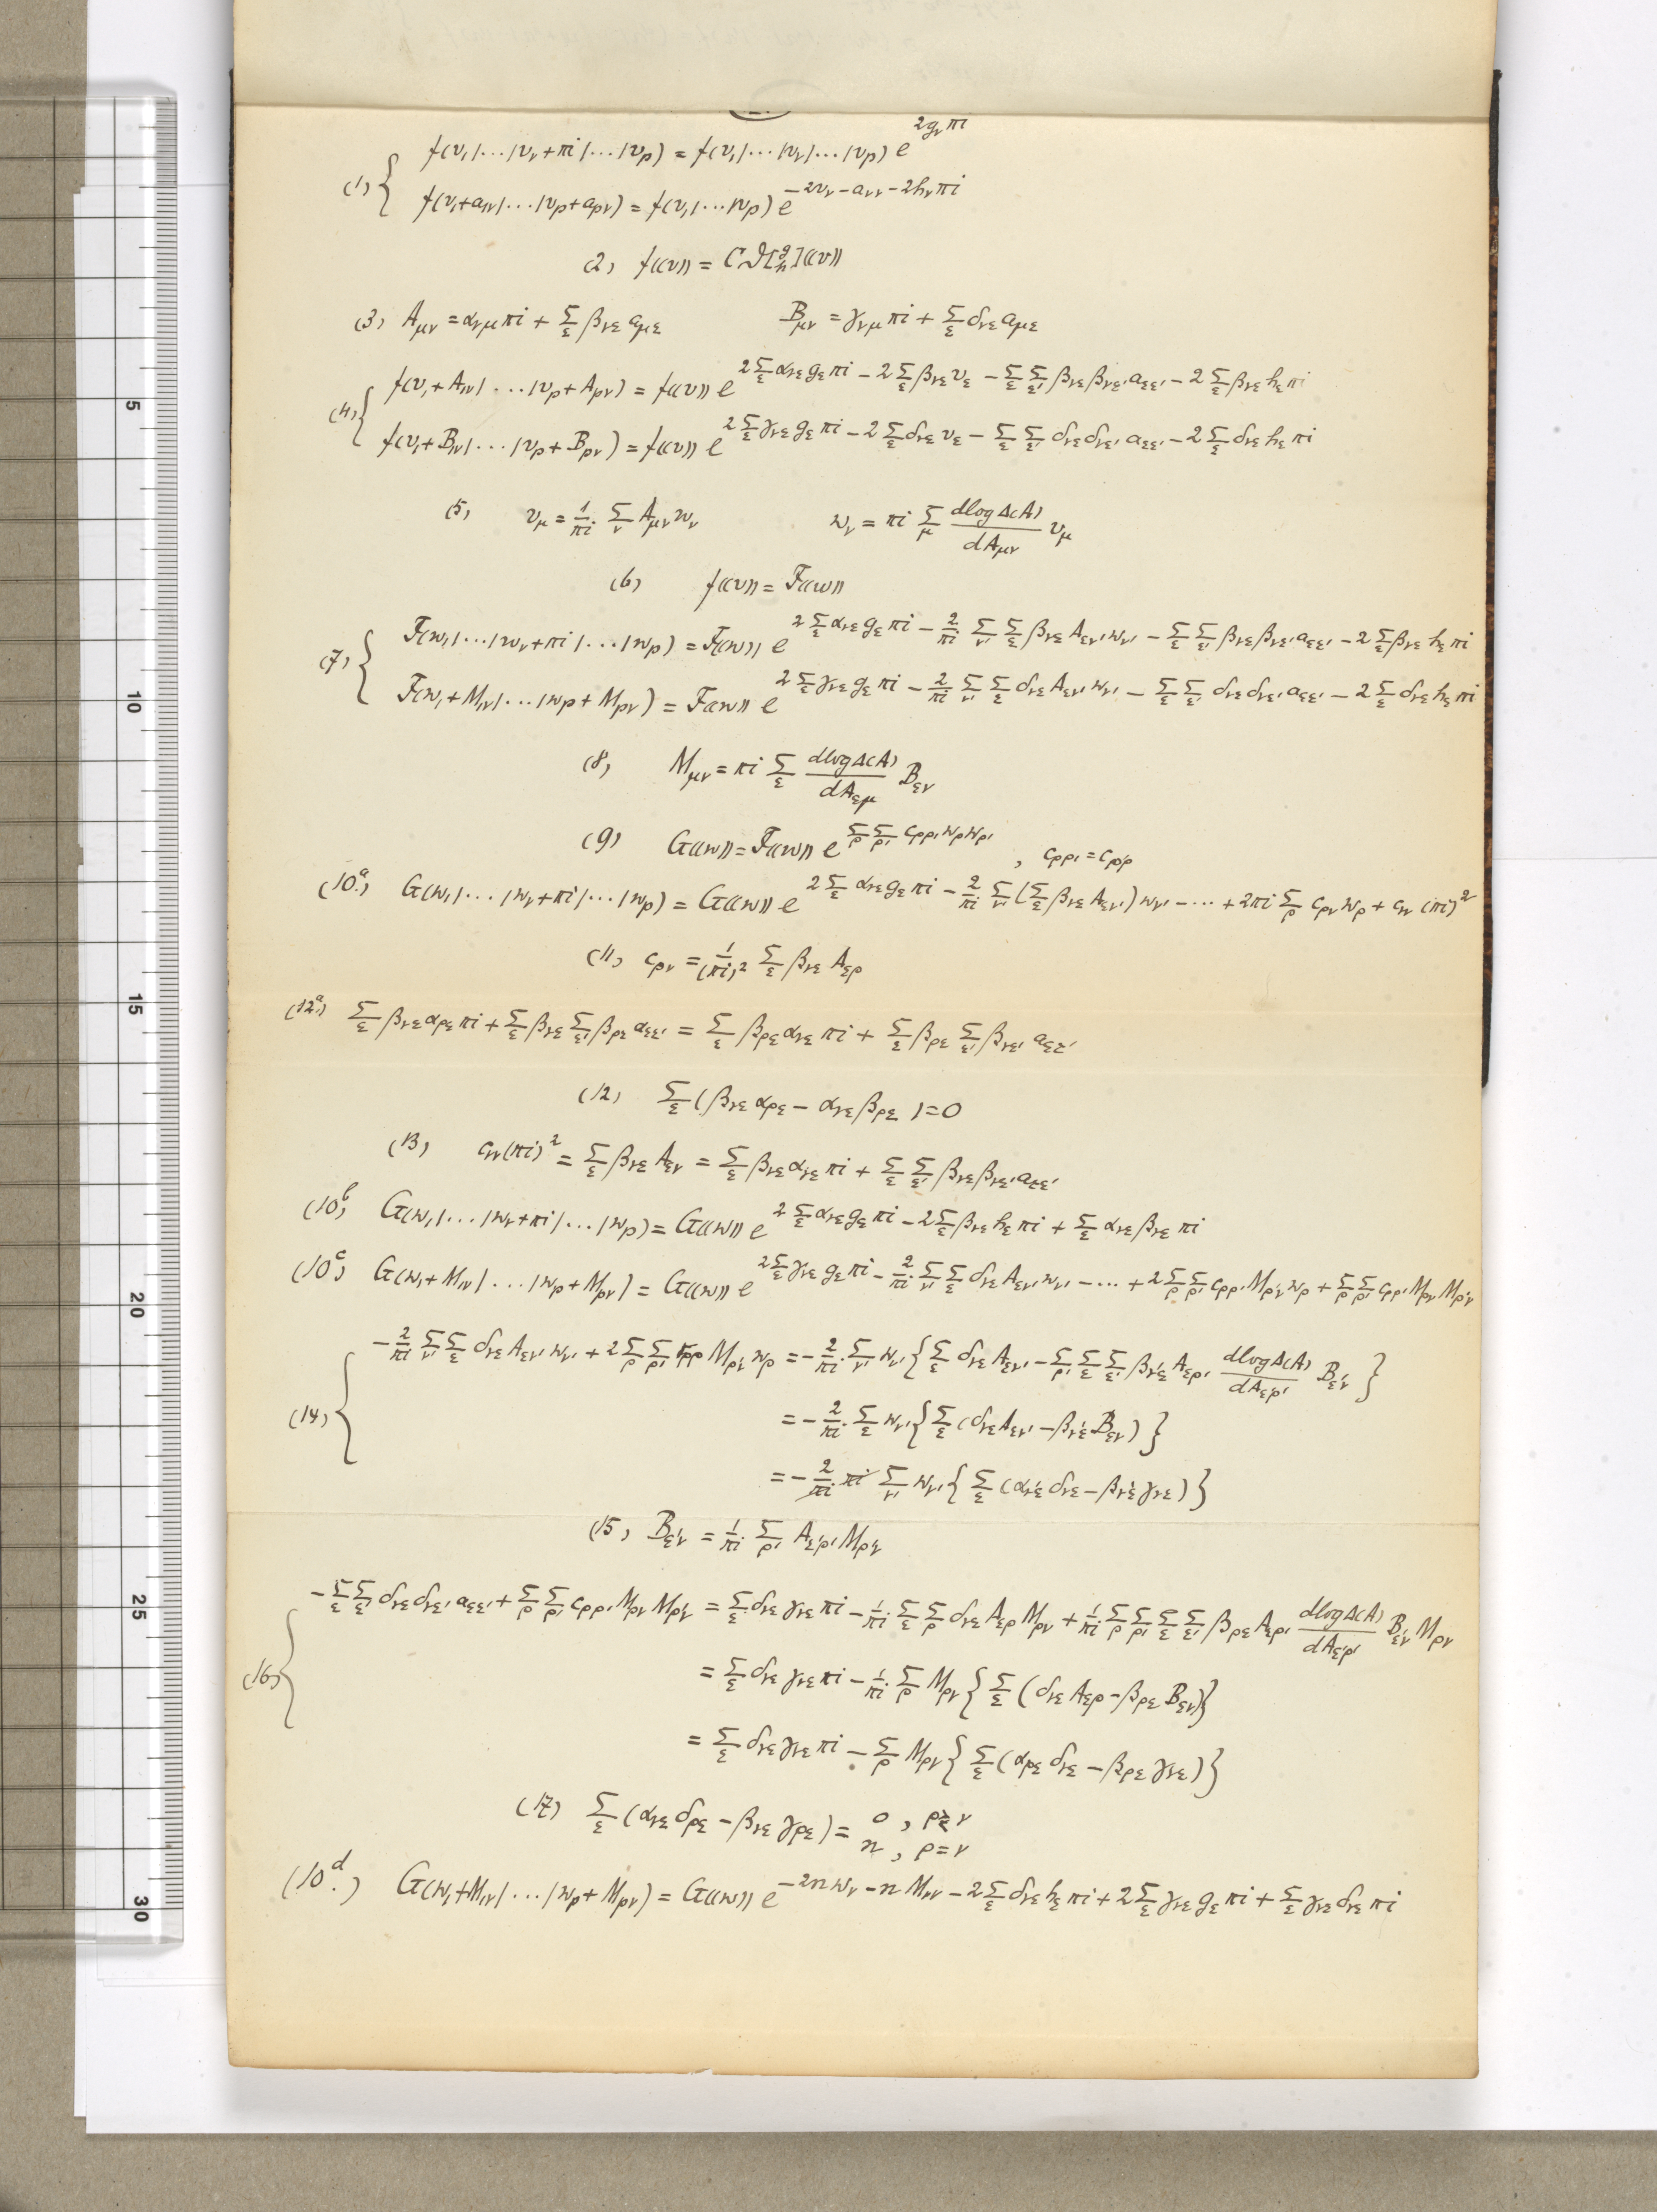 (1) { f(v₁|...|v_ν+πi|...|v_p) = f(v₁|...|v_ν|...|v_p) e^{2g_ν πi}
f(v₁+a_{1ν}|...|v_p+a_{pν}) = f(v₁|...|v_p) e^{−2v_ν−a_{νν}−2h_ν πi}
(2) f((v)) = C ϑ[g h]((v))
(3) A_{μν} = α_{νμ} πi + Σ_ε β_{νε} a_{με} B_{μν} = γ_{νμ} πi + Σ_ε δ_{νε} a_{με}
(4) { f(v₁+A_{1ν}|...|v_p+A_{pν}) = f((v)) e^{2Σ_ε α_{νε} g_ε πi − 2Σ_ε β_{νε} v_ε − Σ_ε Σ_ε' β_{νε} β_{νε'} a_{εε'} − 2Σ_ε β_{νε} h_ε πi}
f(v₁+B_{1ν}|...|v_p+B_{pν}) = f((v)) e^{2Σ_ε γ_{νε} g_ε πi − 2Σ_ε δ_{νε} v_ε − Σ_ε Σ_ε' δ_{νε} δ_{νε'} a_{εε'} − 2Σ_ε δ_{νε} h_ε πi}
(5) v_μ = 1/πi Σ_ν A_{μν} w_ν w_ν = πi Σ_μ dlogΔ(A)/dA_{μν} v_μ
(6) f((v)) = F((w))
(7) { F(w₁|...|w_ν+πi|...|w_p) = F((w)) e^{2Σ_ε α_{νε} g_ε πi − 2/πi Σ_ν' Σ_ε β_{νε} A_{εν'} w_ν' − Σ_ε Σ_ε' β_{νε} β_{νε'} a_{εε'} − 2Σ_ε β_{νε} h_ε πi}
F(w₁+M_{1ν}|...|w_p+M_{pν}) = F((w)) e^{2Σ_ε γ_{νε} g_ε πi − 2/πi Σ_ν' Σ_ε δ_{νε} A_{εν'} w_ν' − Σ_ε Σ_ε' δ_{νε} δ_{νε'} a_{εε'} − 2Σ_ε δ_{νε} h_ε πi}
(8) M_{μν} = πi Σ_ε dlogΔ(A)/dA_{εμ} B_{εν}
(9) G((w)) = F((w)) e^{Σ_ρ Σ_ρ' c_{ρρ'} w_ρ w_ρ'} , c_{ρρ'} = c_{ρ'ρ}
(10.ᵃ) G(w₁|...|w_ν+πi|...|w_p) = G((w)) e^{2Σ_ε α_{νε} g_ε πi − 2/πi Σ_ν' (Σ_ε β_{νε} A_{εν'}) w_ν' − ... + 2πi Σ_ρ c_{ρν} w_ρ + c_{νν} (πi)²}
(11) c_{ρν} = 1/(πi)² Σ_ε β_{νε} A_{ερ}
(12.ᵃ) Σ_ε β_{νε} α_{ρε} πi + Σ_ε β_{νε} Σ_ε' β_{ρε} a_{εε'} = Σ_ε β_{ρε} α_{νε} πi + Σ_ε β_{ρε} Σ_ε' β_{νε'} a_{εε'}
(12) Σ_ε (β_{νε} α_{ρε} − α_{νε} β_{ρε}) = 0
(13) c_{νν}(πi)² = Σ_ε β_{νε} A_{εν} = Σ_ε β_{νε} α_{νε} πi + Σ_ε Σ_ε' β_{νε} β_{νε'} a_{εε'}
(10.ᵇ) G(w₁|...|w_ν+πi|...|w_p) = G((w)) e^{2Σ_ε α_{νε} g_ε πi − 2Σ_ε β_{νε} h_ε πi + Σ_ε α_{νε} β_{νε} πi}
(10.ᶜ) G(w₁+M_{1ν}|...|w_p+M_{pν}) = G((w)) e^{2Σ_ε γ_{νε} g_ε πi − 2/πi Σ_ν' Σ_ε δ_{νε} A_{εν'} w_ν' − ... + 2Σ_ρ Σ_ρ' c_{ρρ'} M_{ρ'ν} w_ρ + Σ_ρ Σ_ρ' c_{ρρ'} M_{ρν} M_{ρ'ν}}
(14) { −2/πi Σ_ν' Σ_ε δ_{νε} A_{εν'} w_ν' + 2Σ_ρ Σ_ρ' M_{ρ'ν} w_ρ = −2/πi Σ_ν' w_ν' {Σ_ε δ_{νε} A_{εν'} − Σ_ρ' Σ_ε Σ_ε' β_{ν'ε} A_{ερ'} dlogΔ(A)/dA_{ε'ρ'} B_{ε'ν}}
= −2/πi Σ_ε w_ν' {Σ_ε (δ_{νε} A_{εν'} − β_{ν'ε} B_{εν})}
= −2/πi πi Σ_ν' w_ν' {Σ_ε (α_{ν'ε} δ_{νε} − β_{ν'ε} γ_{νε})}
(15) B_{ε'ν} = 1/πi Σ_ρ' A_{ε'ρ'} M_{ρ'ν}
(16) { −Σ_ε Σ_ε' δ_{νε} δ_{νε'} a_{εε'} + Σ_ρ Σ_ρ' c_{ρρ'} M_{ρν} M_{ρ'ν} = Σ_ε δ_{νε} γ_{νε} πi − 1/πi Σ_ε Σ_ρ δ_{νε} A_{ερ} M_{ρν} + 1/πi Σ_ρ Σ_ρ' Σ_ε Σ_ε' β_{ρε} A_{ερ'} dlogΔ(A)/dA_{ε'ρ'} B_{ε'ν} M_{ρν}
= Σ_ε δ_{νε} γ_{νε} πi − 1/πi Σ_ρ M_{ρν} {Σ_ε (δ_{νε} A_{ερ} − β_{ρε} B_{εν})}
= Σ_ε δ_{νε} γ_{νε} πi − Σ_ρ M_{ρν} {Σ_ε (α_{ρε} δ_{νε} − β_{ρε} γ_{νε})}
(17) Σ_ε (α_{νε} δ_{ρε} − β_{νε} γ_{ρε}) = 0, ρ≷ν
n, ρ=ν
(10.ᵈ) G(w₁+M_{1ν}|...|w_p+M_{pν}) = G((w)) e^{−2n w_ν − n M_{νν} − 2Σ_ε δ_{νε} h_ε πi + 2Σ_ε γ_{νε} g_ε πi + Σ_ε γ_{νε} δ_{νε} πi}
5
10
15
20
25
30